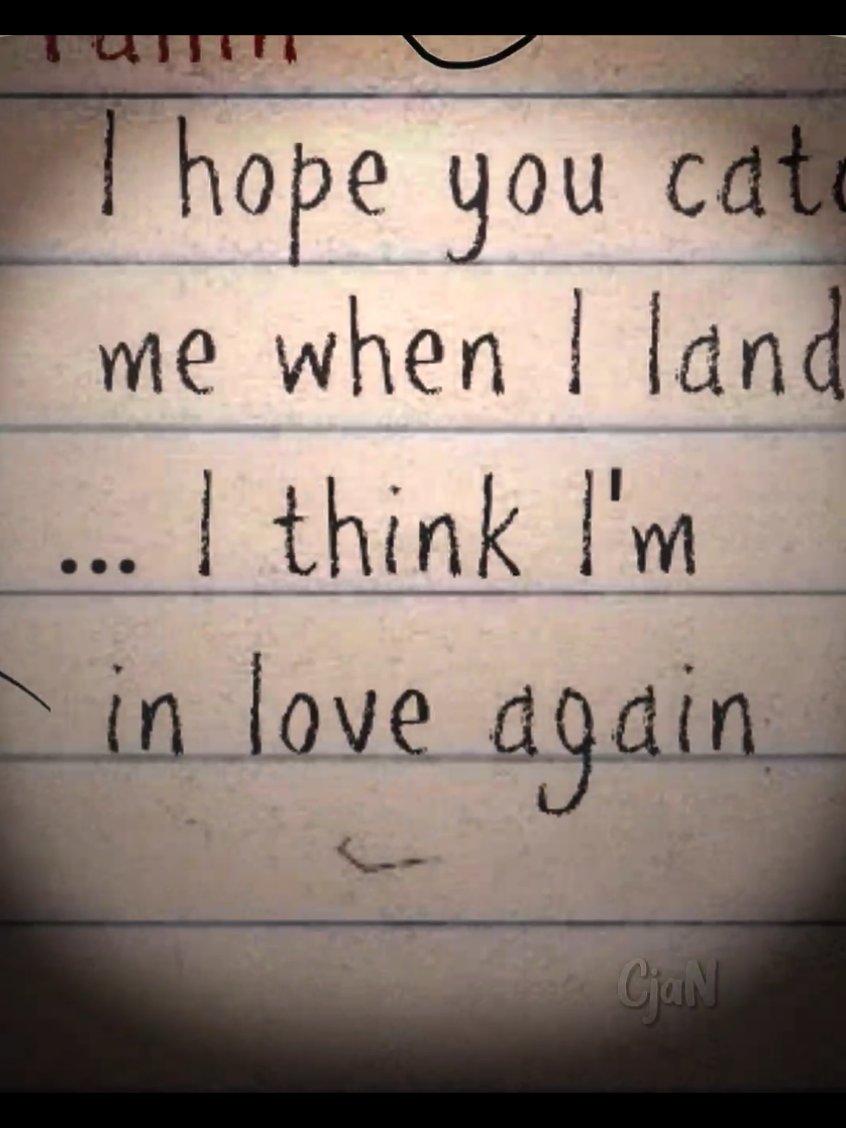 I hope you catc
me when I land
... I think I'm
in love again
CjaN